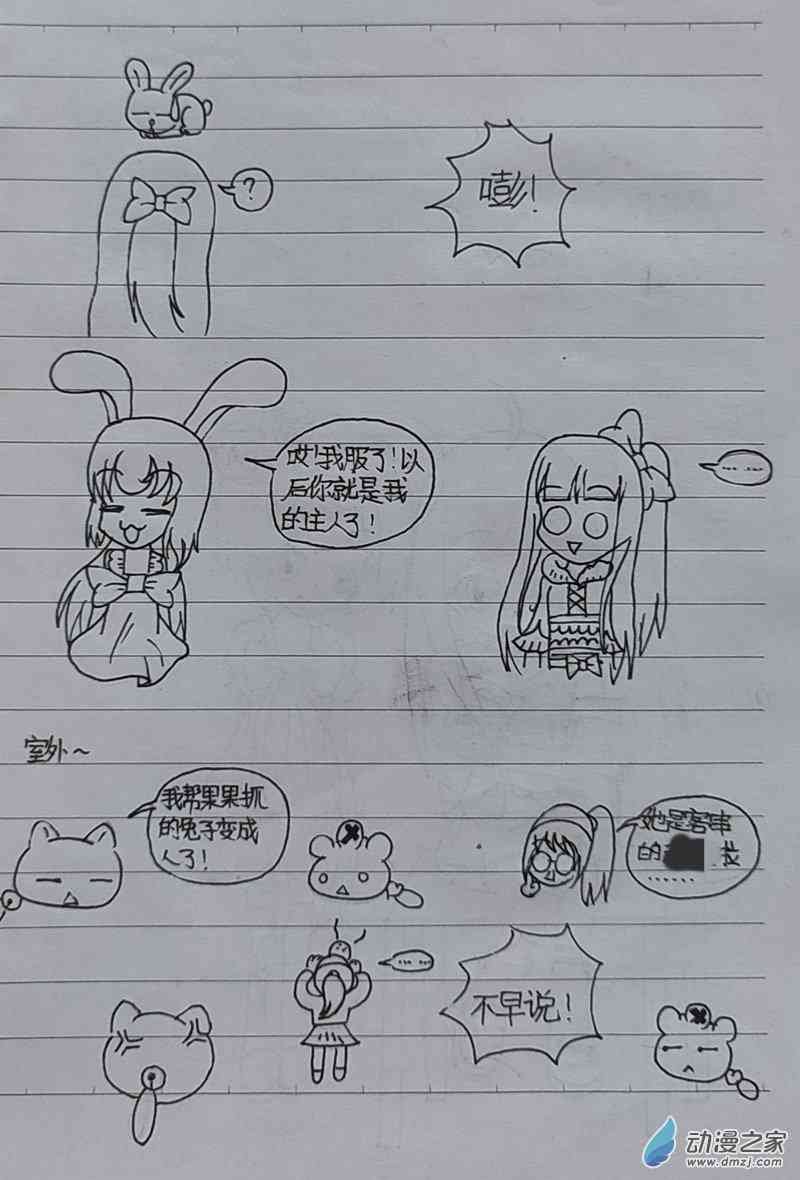 ?
嘭!
哎!我服了!以
后你就是我
的主人了!
……
室外~
我帮果果抓
的兔子变成
人了!
她是客串
的
……
……
不早说!
动漫之家
www.dmzj.com